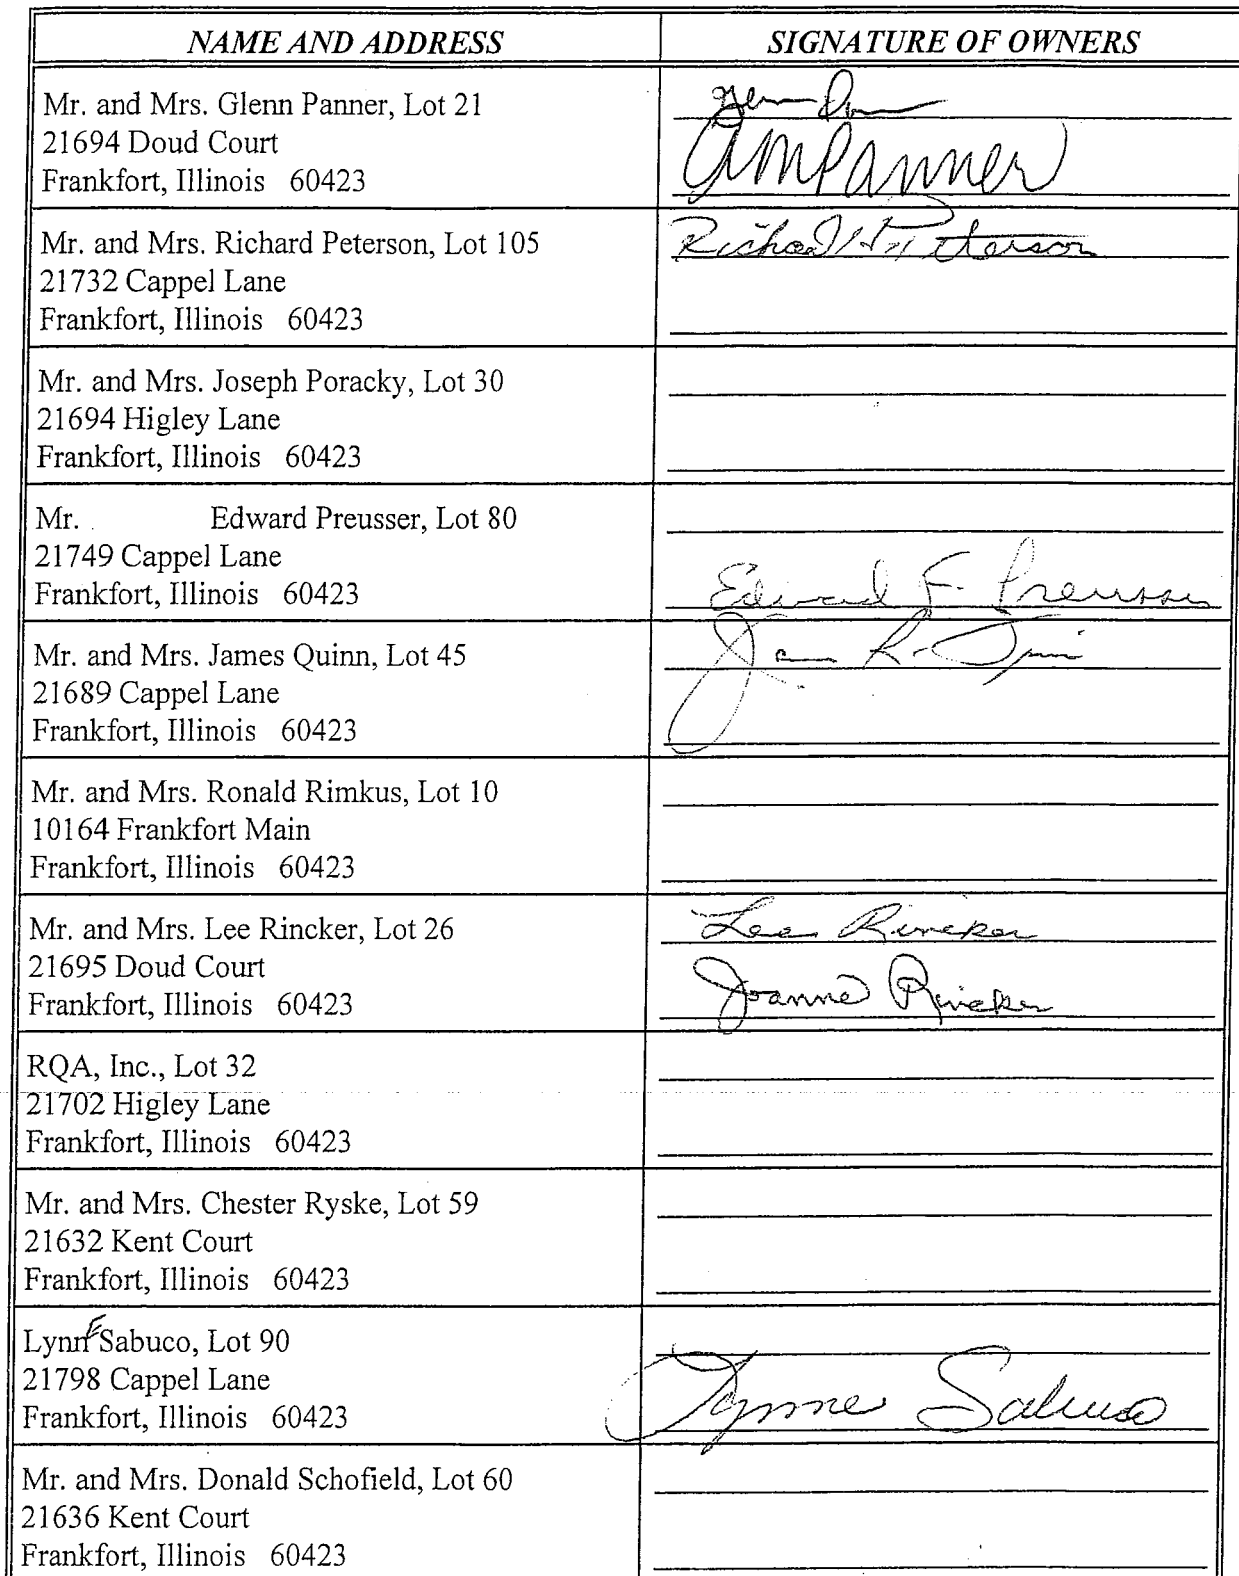 NAME AND ADDRESS
SIGNATURE OF OWNERS
Mr. and Mrs. Glenn Panner, Lot 21
21694 Doud Court
Frankfort, Illinois 60423
Glenn
AMPanner
Mr. and Mrs. Richard Peterson, Lot 105
21732 Cappel Lane
Frankfort, Illinois 60423
Richard H. Peterson
Mr. and Mrs. Joseph Poracky, Lot 30
21694 Higley Lane
Frankfort, Illinois 60423
Mr. Edward Preusser, Lot 80
21749 Cappel Lane
Frankfort, Illinois 60423
Edward F. Preusser
Mr. and Mrs. James Quinn, Lot 45
21689 Cappel Lane
Frankfort, Illinois 60423
James R. Quinn
Mr. and Mrs. Ronald Rimkus, Lot 10
10164 Frankfort Main
Frankfort, Illinois 60423
Mr. and Mrs. Lee Rincker, Lot 26
21695 Doud Court
Frankfort, Illinois 60423
Lee Rincker
Joanne Rincker
RQA, Inc., Lot 32
21702 Higley Lane
Frankfort, Illinois 60423
Mr. and Mrs. Chester Ryske, Lot 59
21632 Kent Court
Frankfort, Illinois 60423
LynnE Sabuco, Lot 90
21798 Cappel Lane
Frankfort, Illinois 60423
Lynne Sabuco
Mr. and Mrs. Donald Schofield, Lot 60
21636 Kent Court
Frankfort, Illinois 60423